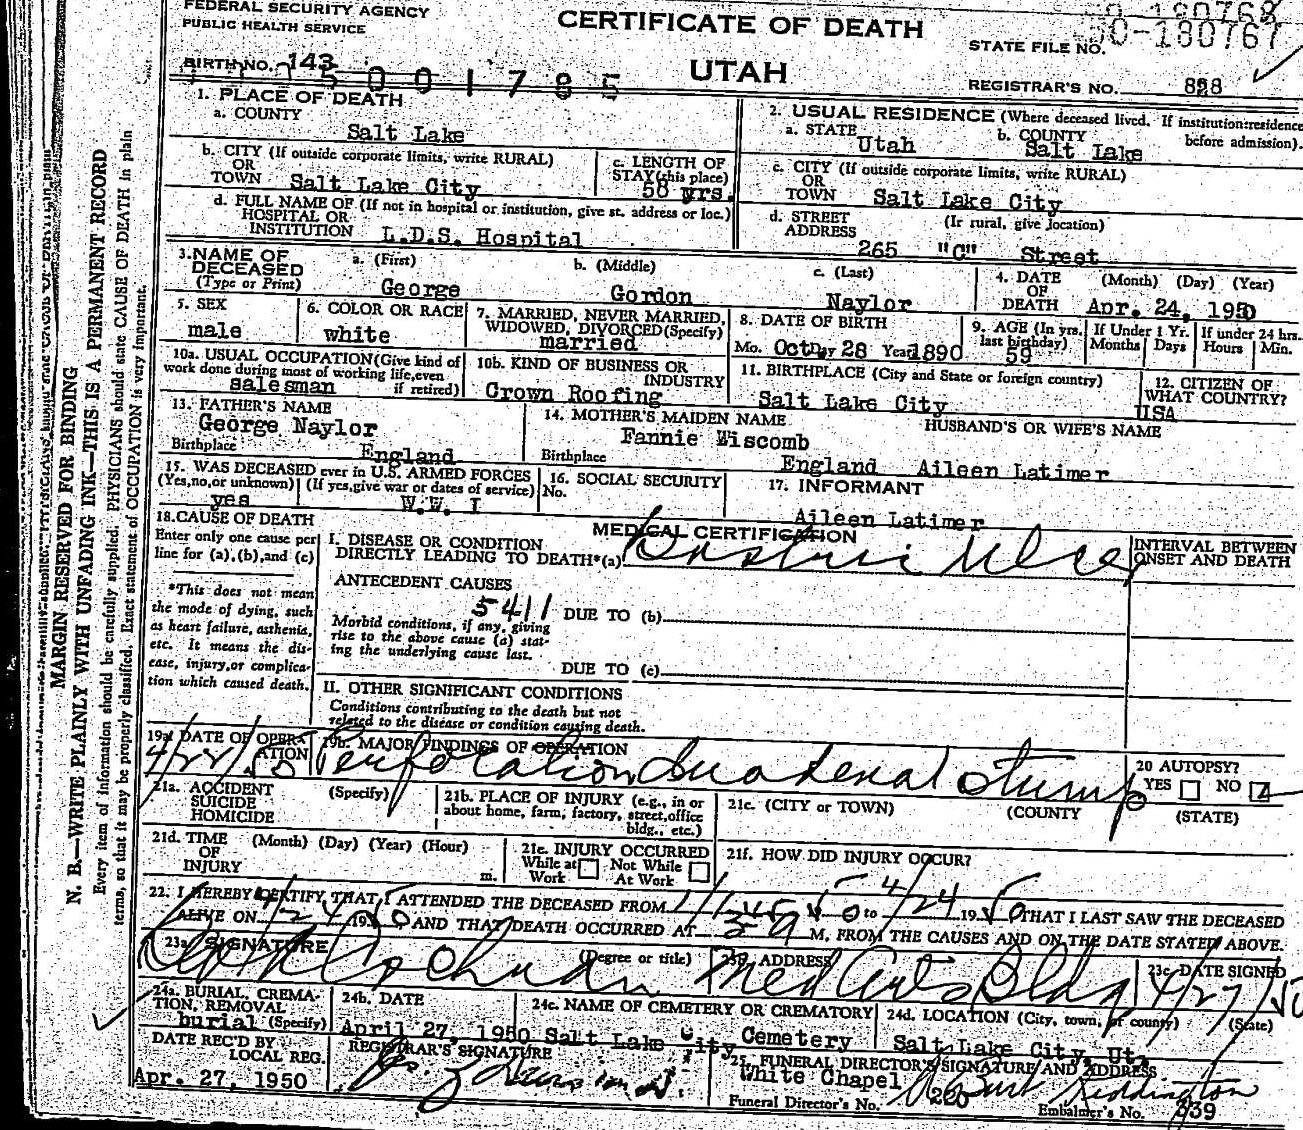 FEDERAL SECURITY AGENCY
PUBLIC HEALTH SERVICE
CERTIFICATE OF DEATH
50-180768
STATE FILE NO. 50-180767
BIRTH NO. 143
5001785
UTAH
REGISTRAR'S NO. 828
MARGIN RESERVED FOR BINDING
N. B.—WRITE PLAINLY WITH UNFADING INK—THIS IS A PERMANENT RECORD
Every item of information should be carefully supplied. PHYSICIANS should state CAUSE OF DEATH in plain
terms, so that it may be properly classified. Exact statement of OCCUPATION is very important.
1. PLACE OF DEATH
a. COUNTY
Salt Lake
2. USUAL RESIDENCE (Where deceased lived. If institution:residence
before admission).
a. STATE Utah b. COUNTY Salt Lake
b. CITY (If outside corporate limits, write RURAL)
OR
TOWN Salt Lake City
c. LENGTH OF
STAY (this place)
58 yrs.
c. CITY (If outside corporate limits, write RURAL)
OR
TOWN Salt Lake City
d. FULL NAME OF (If not in hospital or institution, give st. address or loc.)
HOSPITAL OR
INSTITUTION L.D.S. Hospital
d. STREET (If rural, give location)
ADDRESS 265 "C" Street
3. NAME OF
DECEASED
(Type or Print)
a. (First) George
b. (Middle) Gordon
c. (Last) Naylor
4. DATE (Month) (Day) (Year)
OF
DEATH Apr. 24, 1950
5. SEX
male
6. COLOR OR RACE
white
7. MARRIED, NEVER MARRIED,
WIDOWED, DIVORCED (Specify)
married
8. DATE OF BIRTH
Mo. Oct Day 28 Year 1890
9. AGE (In yrs. last birthday)
59
If Under 1 Yr.
Months Days
If under 24 hrs.
Hours Min.
10a. USUAL OCCUPATION (Give kind of
work done during most of working life, even
if retired)
salesman
10b. KIND OF BUSINESS OR
INDUSTRY
Crown Roofing
11. BIRTHPLACE (City and State or foreign country)
Salt Lake City
12. CITIZEN OF
WHAT COUNTRY?
USA
13. FATHER'S NAME
George Naylor
Birthplace England
14. MOTHER'S MAIDEN NAME
Fannie Wiscomb
Birthplace England
HUSBAND'S OR WIFE'S NAME
Aileen Latimer
15. WAS DECEASED ever in U.S. ARMED FORCES
(Yes, no, or unknown) (If yes, give war or dates of service)
yes W.W. I
16. SOCIAL SECURITY
No.
17. INFORMANT
Aileen Latimer
18. CAUSE OF DEATH
Enter only one cause per
line for (a), (b), and (c)
*This does not mean
the mode of dying, such
as heart failure, asthenia,
etc. It means the dis-
ease, injury, or complica-
tion which caused death.
MEDICAL CERTIFICATION
I. DISEASE OR CONDITION
DIRECTLY LEADING TO DEATH*(a) Gastric Ulcer
INTERVAL BETWEEN
ONSET AND DEATH
ANTECEDENT CAUSES
5411
DUE TO (b)
Morbid conditions, if any, giving
rise to the above cause (a) stat-
ing the underlying cause last.
DUE TO (c)
II. OTHER SIGNIFICANT CONDITIONS
Conditions contributing to the death but not
related to the disease or condition causing death.
19a DATE OF OPERA-
TION
4/22/50
19b. MAJOR FINDINGS OF OPERATION
Perforation duodenal stump
20 AUTOPSY?
YES NO
21a. ACCIDENT
SUICIDE
HOMICIDE
(Specify)
21b. PLACE OF INJURY (e.g., in or
about home, farm, factory, street, office
bldg., etc.)
21c. (CITY or TOWN) (COUNTY (STATE)
21d. TIME (Month) (Day) (Year) (Hour)
OF
INJURY m.
21e. INJURY OCCURRED
While at Work Not While At Work
21f. HOW DID INJURY OCCUR?
22. I HEREBY CERTIFY THAT I ATTENDED THE DECEASED FROM to 4/24 1950 THAT I LAST SAW THE DECEASED
ALIVE ON 4/24 1950 AND THAT DEATH OCCURRED AT M, FROM THE CAUSES AND ON THE DATE STATED ABOVE.
23a SIGNATURE (Degree or title)
23b ADDRESS
Med Arts Bldg
23c DATE SIGNED
4/27/50
24a. BURIAL, CREMA-
TION, REMOVAL
burial (Specify)
24b. DATE
April 27, 1950
24c. NAME OF CEMETERY OR CREMATORY
Salt Lake City Cemetery
24d. LOCATION (City, town, or county) (State)
Salt Lake City, Ut.
DATE REC'D BY
LOCAL REG.
Apr. 27, 1950
REGISTRAR'S SIGNATURE
25. FUNERAL DIRECTOR'S SIGNATURE AND ADDRESS
White Chapel
Funeral Director's No. 220
Embalmer's No. 339